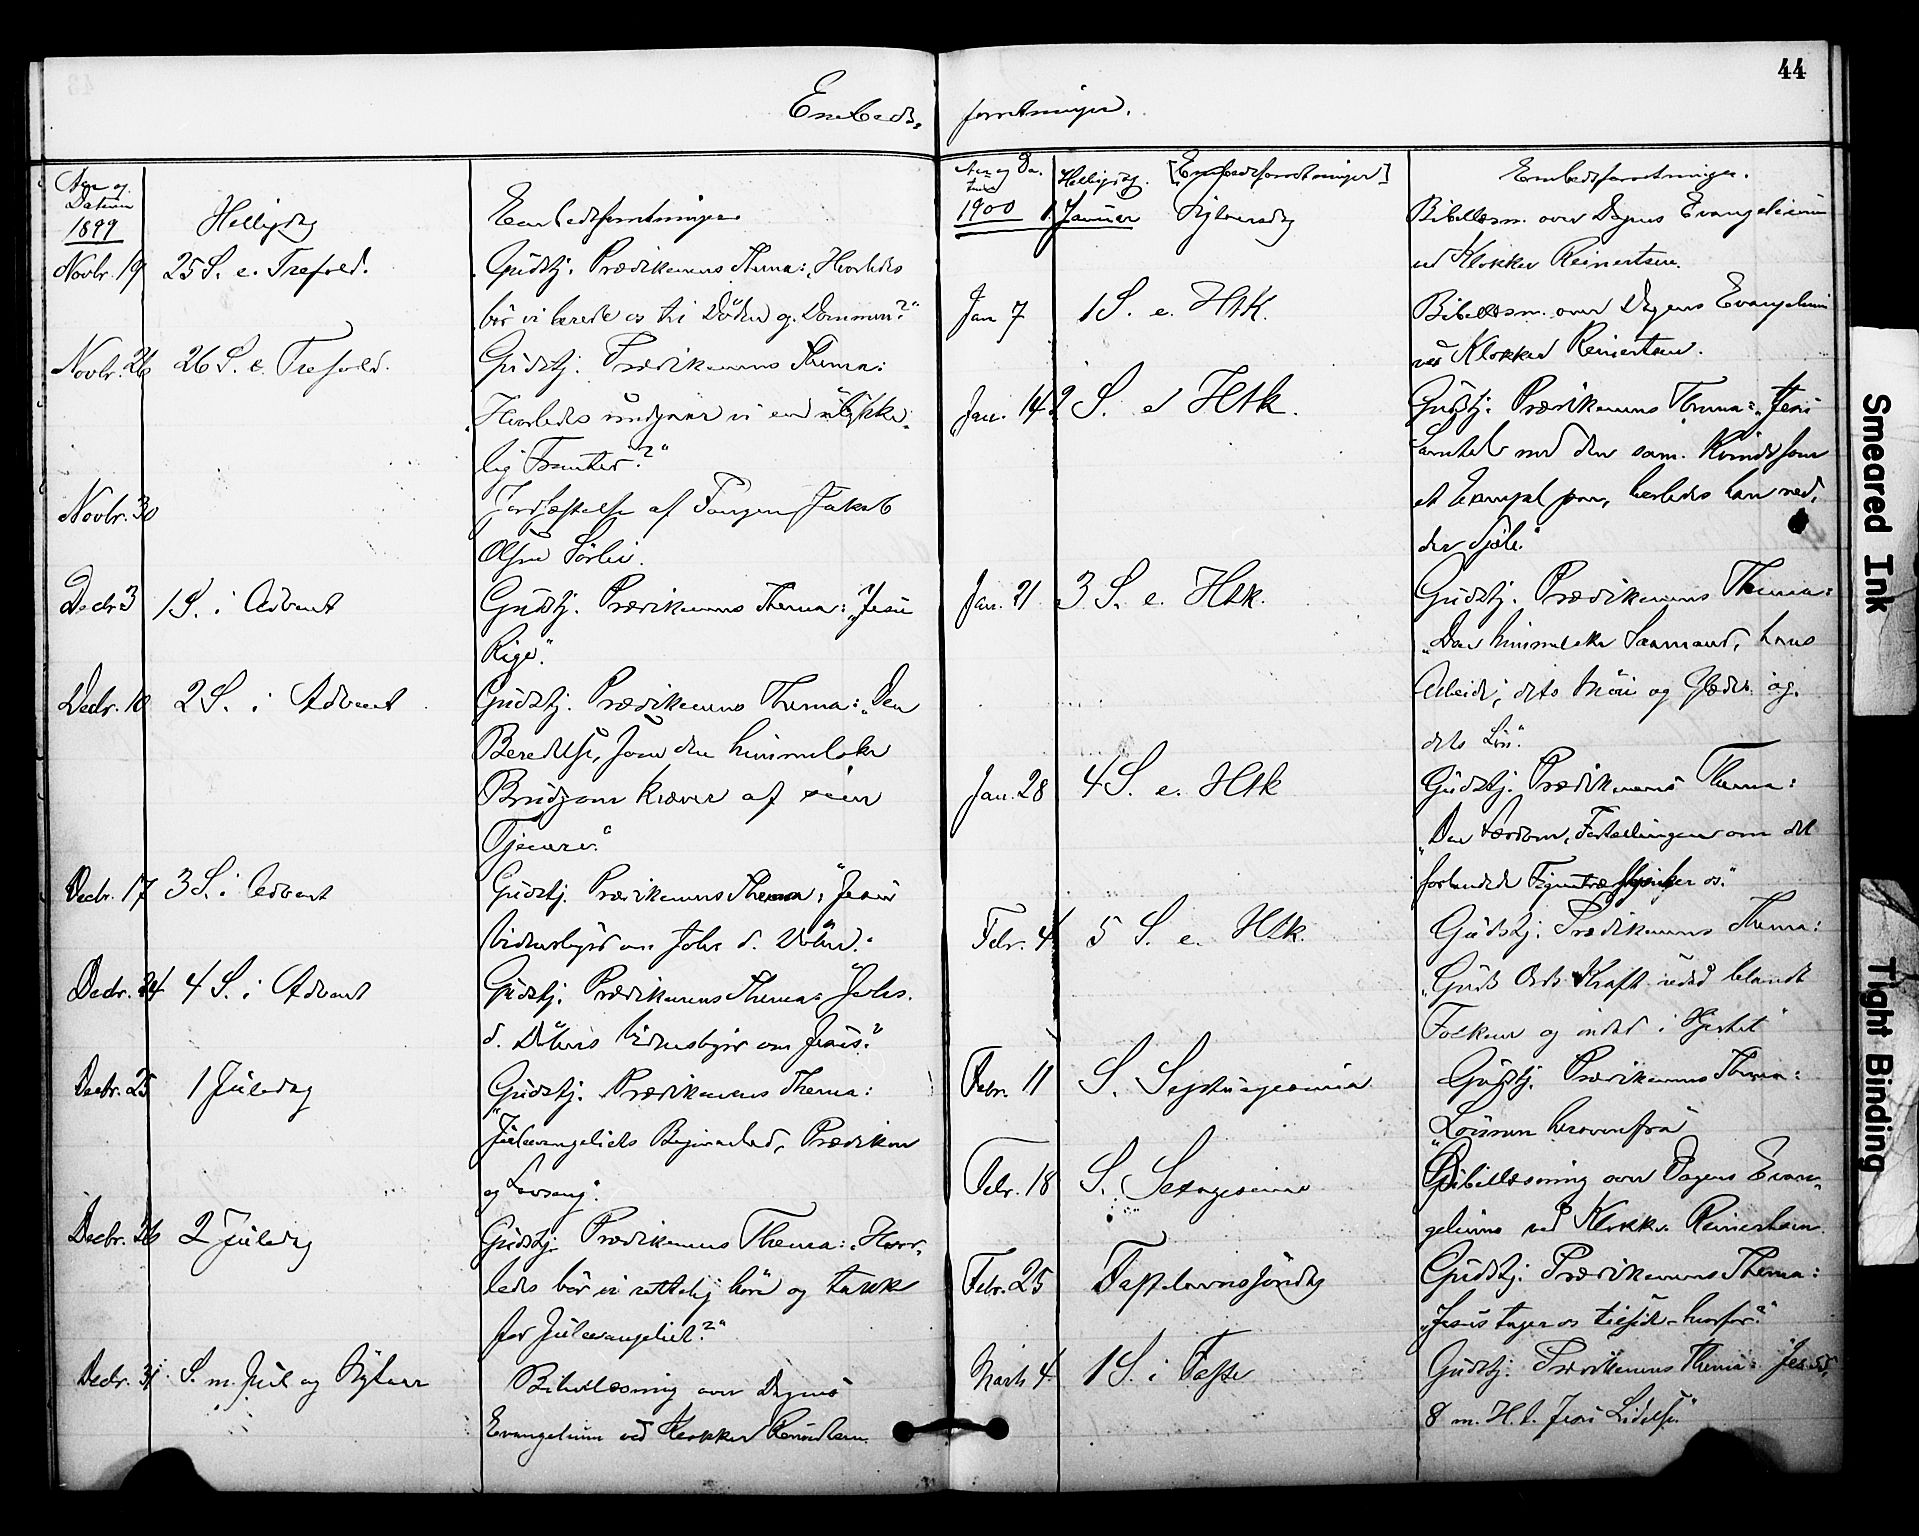 44
Embeds-
forretninger.
Aar og
Datum
1899
Helligdag
Embedsforretninger.
Novbr. 19 25 S. e. Trefold. Gudstj. Prædikenens Thema: "Hvorledes
bör vi berede os til Döden og Dommen?"
Novbr. 26 26 S. e. Trefold. Gudstj. Prædikenens Thema:
"Hvorledes undgaar vi en ulykke-
lig Franter?"
Novbr. 30 Jordfæstelse af Fangen Jakob
Olsen Sörlie.
Decbr 3 1 S. i Advent Gudstj. Prædikenens Thema: "Jesu
Rige".
Decbr. 10 2 S. i Advent Gudstj. Prædikenens Thema: "Den
Beredelse, som den himmelske
Brudgom kræver af sine
Tjenere".
Decbr. 17 3 S. i Advent Gudstj. Prædikenens Thema: "Jesu
Vidnesbyrd om Johs d. Döber."
Decbr. 24 4 S. i Advent Gudstj. Prædikenens Thema: "Johs.
d. Döbers Vidnesbyrd om Jesus."
Decbr. 25 1 Juledag Gudstj. Prædikenens Thema:
"Juleevangeliets Begivenhed, Prædiken
og Lovsang".
Decbr. 26 2 Juledag Gudstj. Prædikenens Thema: "Hvor-
ledes bör vi rettelig höre og takke
for Juleevangeliet?"
Decbr. 31 S. m. Jul og Nytaar Bibellæsning over Dagens
Evangelium ved Klokker Reinertsen.
Aar og Da-
tum
Helligdag.
[Embedsforretninger]
Embedsforretninger.
1900 1 Januar Nytaarsdag Bibellæsn. over Dagens Evangelium
ved Klokker Reinertsen.
Jan 7 1 S. e. HtK. Bibellæsn. over Dagens Evangelium
ved Klokker Reinertsen.
Jan. 14 2 S. e HtK. Gudstj. Prædikenens Thema: "Jesu
Samtale med den sam. Kvinde som
et Exempel paa, hvorledes han
der Sjæle."
Jan. 21 3 S. e. Htk. Gudstj. Prædikenens Thema:
"Den himmelske Saamand, hans
Arbeide, dets Möie og Glæde og
dets Lön".
Jan. 28 4 S. e. Htk Gudstj. Prædikenens Thema:
"Den Lærdom, Fortællingen om det
forbandede Figentræ skjænker os."
Febr. 4 5 S. e. Htk. Gudstj. Prædikenens Thema:
"Guds Ords Kraft udad blandt
Folkene og indad i Hjertet"
Febr. 11 S. Septuagesima Gudstj. Prædikenens Thema:
"Lönnen herovenfra"
Febr. 18 S. Sexagesima Bibellæsning over Dagens Evan-
gelium ved Klokker Reinertsen
Febr. 25 Fastelavnssöndag Gudstj. Prædikenens Thema:
"Jesus tager os tilside - hvorfor?"
Marts 4 1 S. i Faste Gudstj. Prædikenens Thema:
8 m. H. t. Jesu Lidelse."
Smeared Ink
Tight Binding